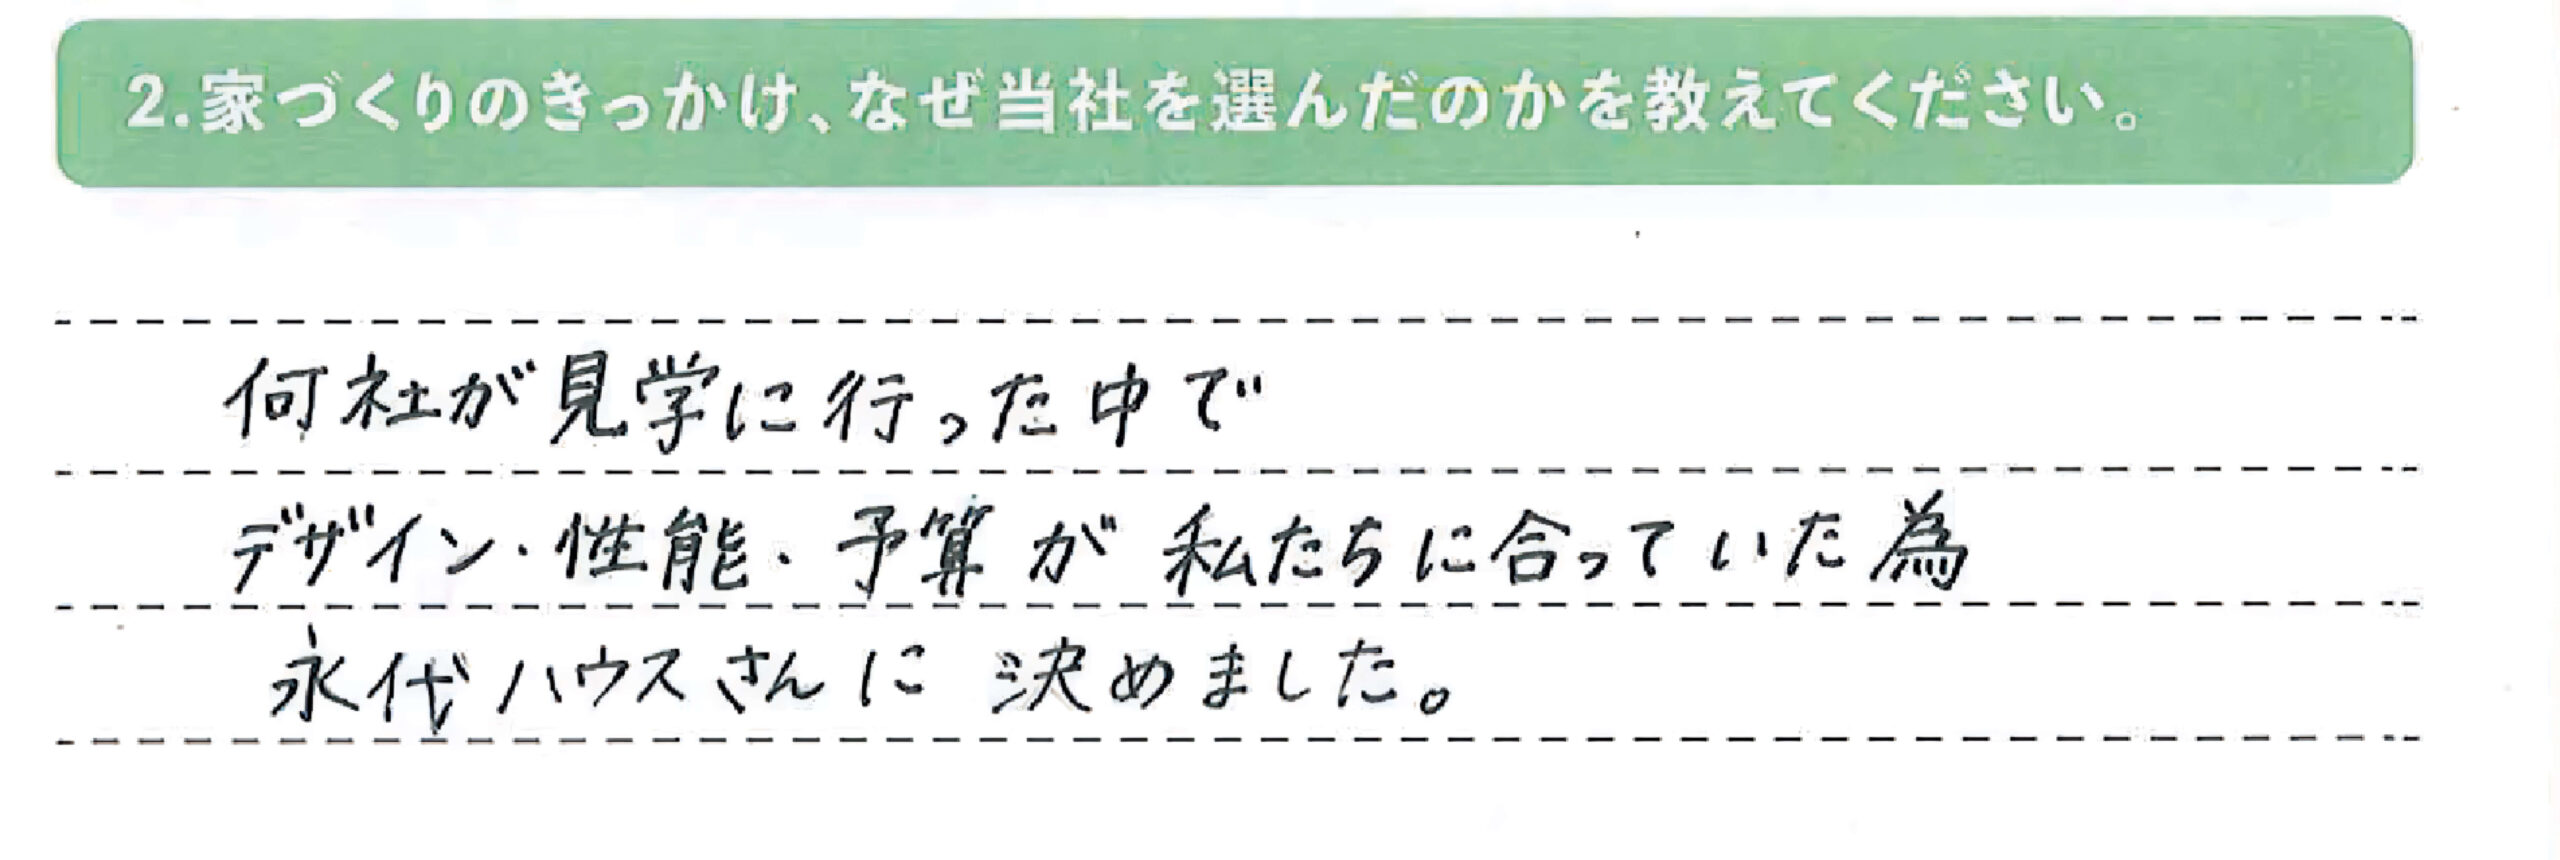 2.家づくりのきっかけ、なぜ当社を選んだのかを教えてください。
何社が見学に行った中で
デザイン・性能・予算が私たちに合っていた為
永代ハウスさんに決めました。